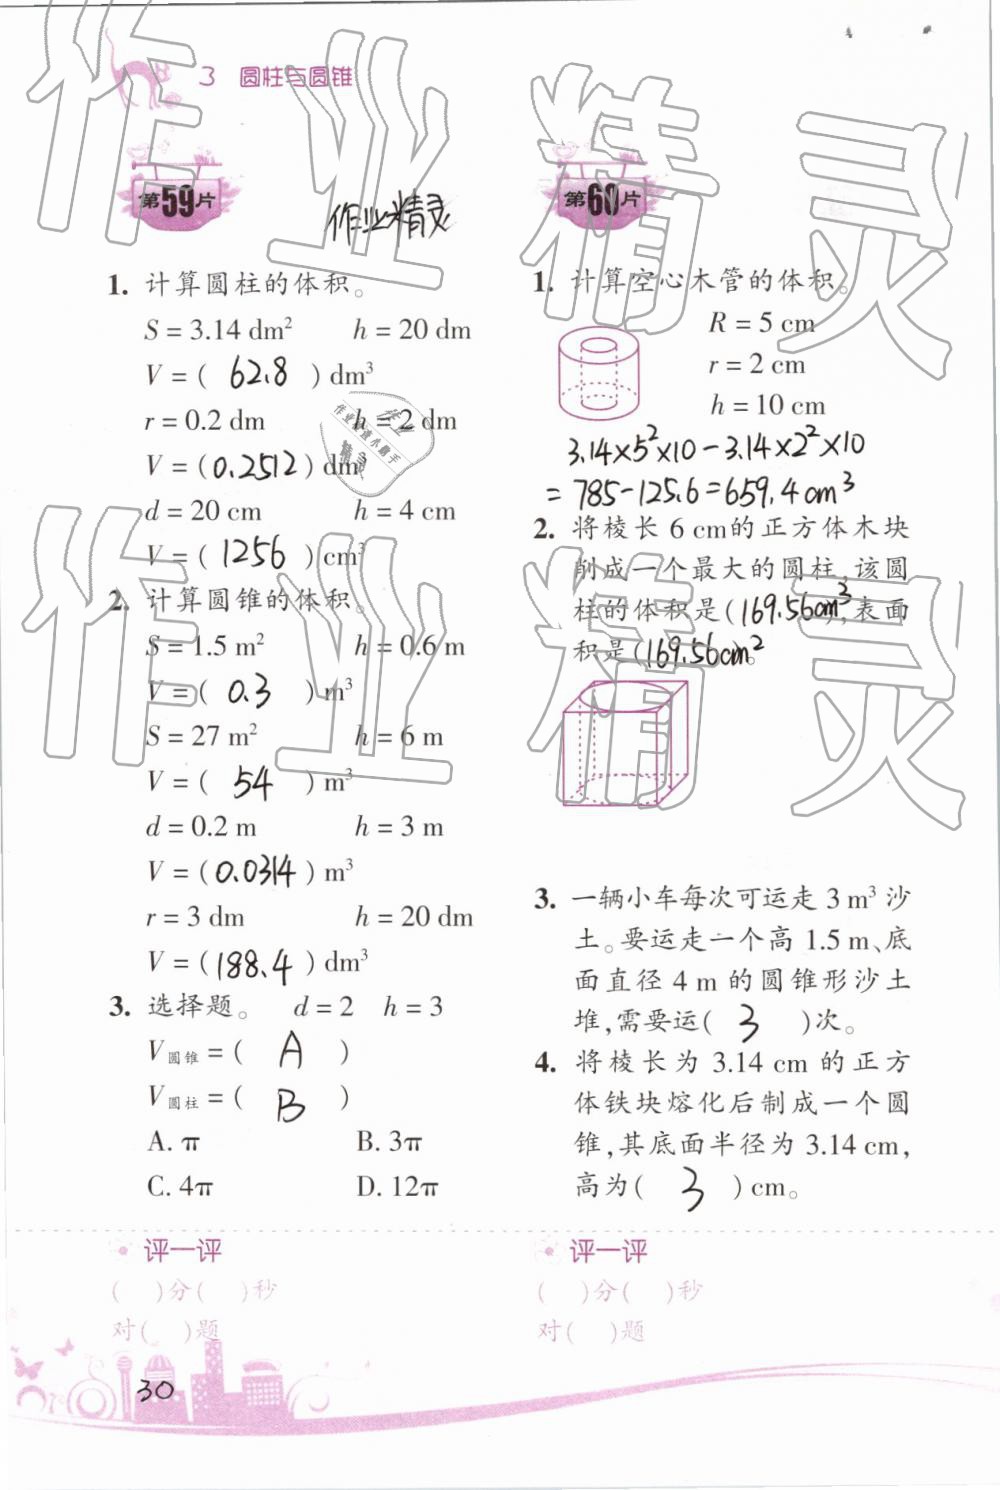 3 圆柱与圆锥
第59片
作业精灵
1. 计算圆柱的体积。
S = 3.14 dm² h = 20 dm
V = ( 62.8 ) dm³
r = 0.2 dm h = 2 dm
V = ( 0.2512 ) dm³
d = 20 cm h = 4 cm
V = ( 1256 ) cm³
2. 计算圆锥的体积。
S = 1.5 m² h = 0.6 m
V = ( 0.3 ) m³
S = 27 m² h = 6 m
V = ( 54 ) m³
d = 0.2 m h = 3 m
V = ( 0.0314 ) m³
r = 3 dm h = 20 dm
V = ( 188.4 ) dm³
3. 选择题。 d = 2 h = 3
V圆锥 = ( A )
V圆柱 = ( B )
A. π B. 3π
C. 4π D. 12π
评一评
( )分( )秒
对( )题
30
第60片
1. 计算空心木管的体积。
R = 5 cm
r = 2 cm
h = 10 cm
3.14×5²×10−3.14×2²×10
=785−125.6=659.4cm³
2. 将棱长 6 cm的正方体木块
削成一个最大的圆柱,该圆
柱的体积是(169.56cm³),表面
积是(169.56cm²)。
3. 一辆小车每次可运走 3 m³ 沙
土。要运走一个高 1.5 m、底
面直径 4 m 的圆锥形沙土
堆,需要运( 3 )次。
4. 将棱长为 3.14 cm 的正方
体铁块熔化后制成一个圆
锥,其底面半径为 3.14 cm,
高为( 3 ) cm。
评一评
( )分( )秒
对( )题
作业精灵
作业精灵